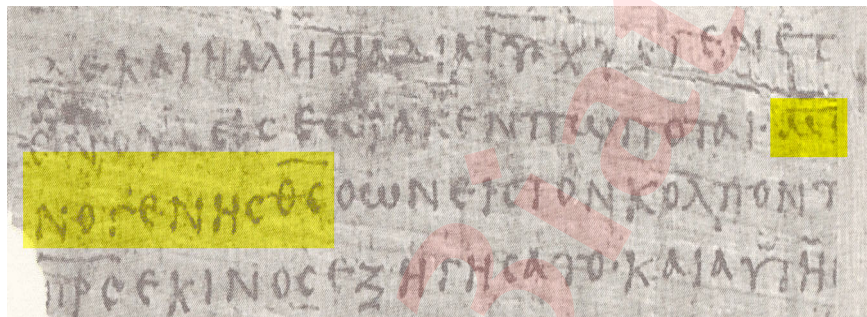 ΔΕΚΑΙΗΑΛΗΘΙΑΔΙΑΙΥΧΥΕΓΕΝΕΤ
ΟΥΔΕΙϹΕΩΡΑΚΕΝΠΩΠΟΤΑΙ·ΜΟ
ΝΟΓΕΝΗϹΘ̅Ϲ̅ΟΩΝΕΙϹΤΟΝΚΟΛΠΟΝΤ
Π̅Ρ̅Ϲ̅ΕΚΙΝΟϹΕΞΗΓΗϹΑΤΟ·ΚΑΙΑΥΤΗ